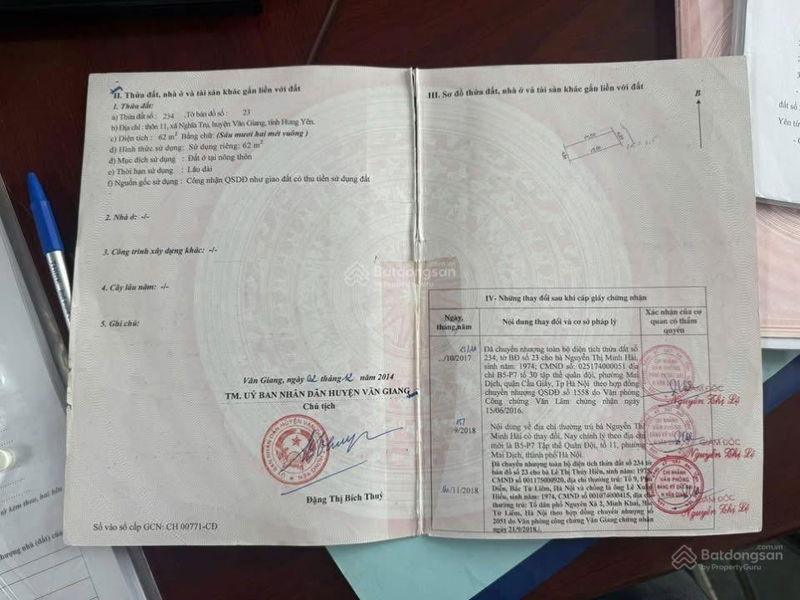 II. Thửa đất, nhà ở và tài sản khác gắn liền với đất
1. Thửa đất:
a) Thửa đất số: 234 ,Tờ bản đồ số : 23
b) Địa chỉ: thôn 11, xã Nghĩa Trụ, huyện Văn Giang, tỉnh Hưng Yên.
c) Diện tích : 62 m² Bằng chữ: (Sáu mươi hai mét vuông )
d) Hình thức sử dụng: Sử dụng riêng: 62 m²
đ) Mục đích sử dụng : Đất ở tại nông thôn
e) Thời hạn sử dụng : Lâu dài
f) Nguồn gốc sử dụng : Công nhận QSDĐ như giao đất có thu tiền sử dụng đất
2. Nhà ở: -/-
3. Công trình xây dựng khác: -/-
4. Cây lâu năm: -/-
5. Ghi chú:
Văn Giang, ngày 02 tháng 12 năm 2014
TM. UỶ BAN NHÂN DÂN HUYỆN VĂN GIANG
Chủ tịch
Đặng Thị Bích Thuỷ
Số vào sổ cấp GCN: CH 00771-CĐ
III. Sơ đồ thửa đất, nhà ở và tài sản khác gắn liền với đất
B
IV- Những thay đổi sau khi cấp giấy chứng nhận
Ngày, tháng,năm
Nội dung thay đổi và cơ sở pháp lý
Xác nhận của cơ quan có thẩm quyền
.../10/2017
Đã chuyển nhượng toàn bộ diện tích thửa đất số
234, tờ BĐ số 23 cho bà Nguyễn Thị Minh Hải,
sinh năm: 1974; CMND số: 025174000051 địa
chỉ B5-P7 tổ 30 tập thể quân đội, phường Mai
Dịch, quận Cầu Giấy, Tp Hà Nội theo hợp đồng
chuyển nhượng QSDĐ số 1558 do Văn Phòng
Công chứng Văn Lâm chứng nhận ngày
15/06/2016.
GIÁM ĐỐC
Nguyễn Thị Lệ
9/2018
Nội dung về địa chỉ thường trú bà Nguyễn Thị
Minh Hải có thay đổi. Nay chỉnh lý theo địa chỉ
mới là B5-P7 Tập thể Quân Đội, tổ 11, phường
Mai Dịch, thành phố Hà Nội.
GIÁM ĐỐC
Nguyễn Thị Lệ
/11/2018
Đã chuyển nhượng toàn bộ diện tích thửa đất số 234 tờ
bản đồ số 23 cho bà Lê Thị Thúy Hiền, sinh năm: 1974,
CMND số 001175000920, địa chỉ thường trú: Tổ 9, P.
Diễn, Bắc Từ Liêm, Hà Nội và chồng là ông Lê Xuân
Hiên, sinh năm: 1974, CMND số 001074000415, địa chỉ
thường trú: Tổ dân phố Nguyên Xá 2, Minh Khai,
Từ Liêm, Hà Nội theo hợp đồng chuyển nhượng số
2051 do Văn phòng công chứng Văn Giang chứng nhận
ngày 21/9/2018./.
CHI NHÁNH
VĂN PHÒNG
ĐĂNG KÝ ĐẤT ĐAI
H.VĂN GIANG
GIÁM ĐỐC
Nguyễn Thị Lệ
Batdongsan
.com.vn
by PropertyGuru
Batdongsan
.com.vn
by PropertyGuru